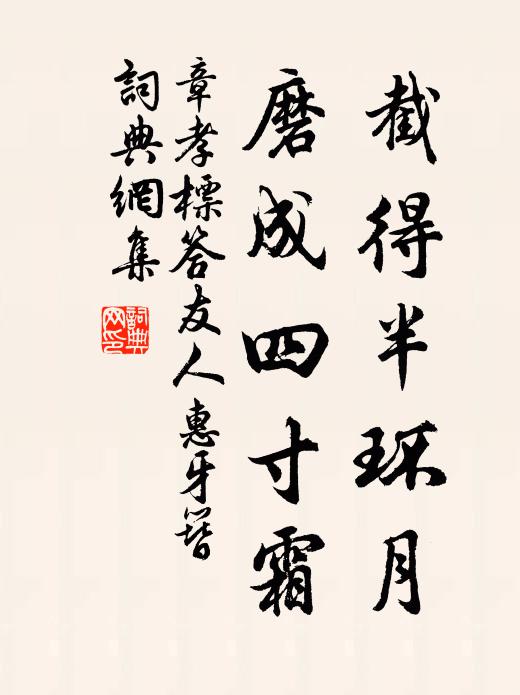 截得半環月
磨成四寸霜
章孝標答友人惠牙簪
詞典網集
詞典网印